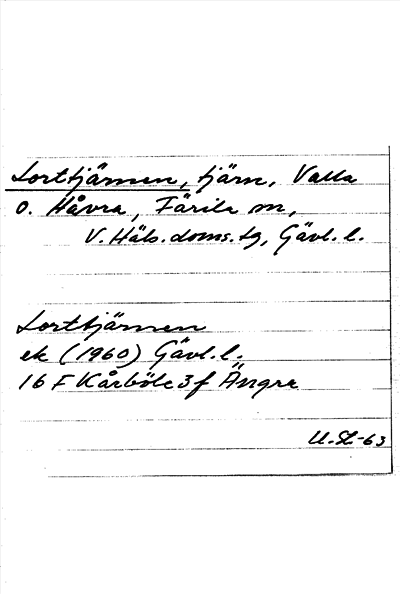 Lorttjärnen, tjärn, Valla
o. Håvra, Färila sn,
V. Häls. doms. tg, Gävl. l.
Lorttjärnen
ek (1960) Gävl. l.
16 F Kårböle 3 f Ängra
U. St. -63